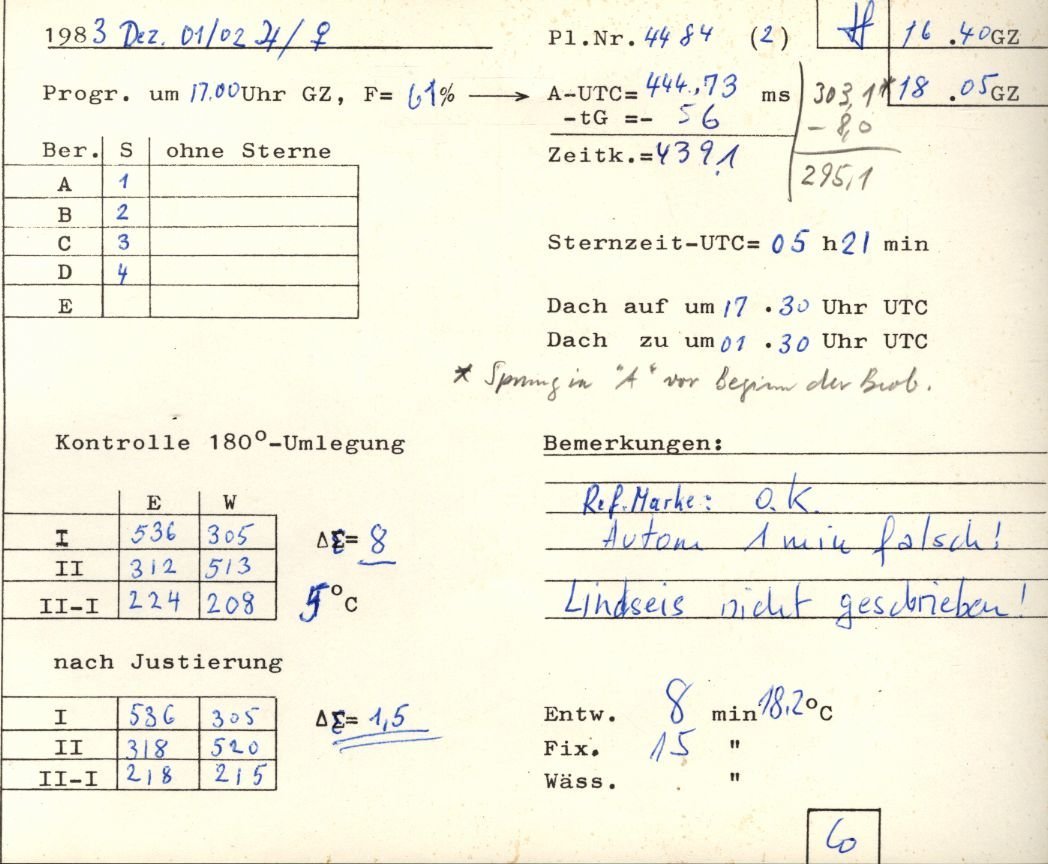 1983 Dez. 01/02 ♃/♀ Pl.Nr. 4484 (2) 16 .40GZ
Progr. um 17.00 Uhr GZ, F= 61% → A-UTC= 444,73 ms 303,1* 18 .05GZ
-tG =- 56 - 8,0
Zeitk.= 439,1 295,1
Ber. S ohne Sterne
A 1
B 2
C 3
D 4
E
Sternzeit-UTC= 05 h 21 min
Dach auf um 17 .30 Uhr UTC
Dach zu um 01 .30 Uhr UTC
* Sprung in "A" vor Beginn der Beob.
Kontrolle 180°-Umlegung
E W
I 536 305 ΔΣ= 8
II 312 513
II-I 224 208 5°C
Bemerkungen:
Ref.Marke: O.K.
Autom 1 min falsch!
Lindseis nicht geschrieben!
nach Justierung
I 536 305 ΔΣ= 1,5
II 318 520
II-I 218 215
Entw. 8 min 18,2°C
Fix. 15 "
Wäss. "